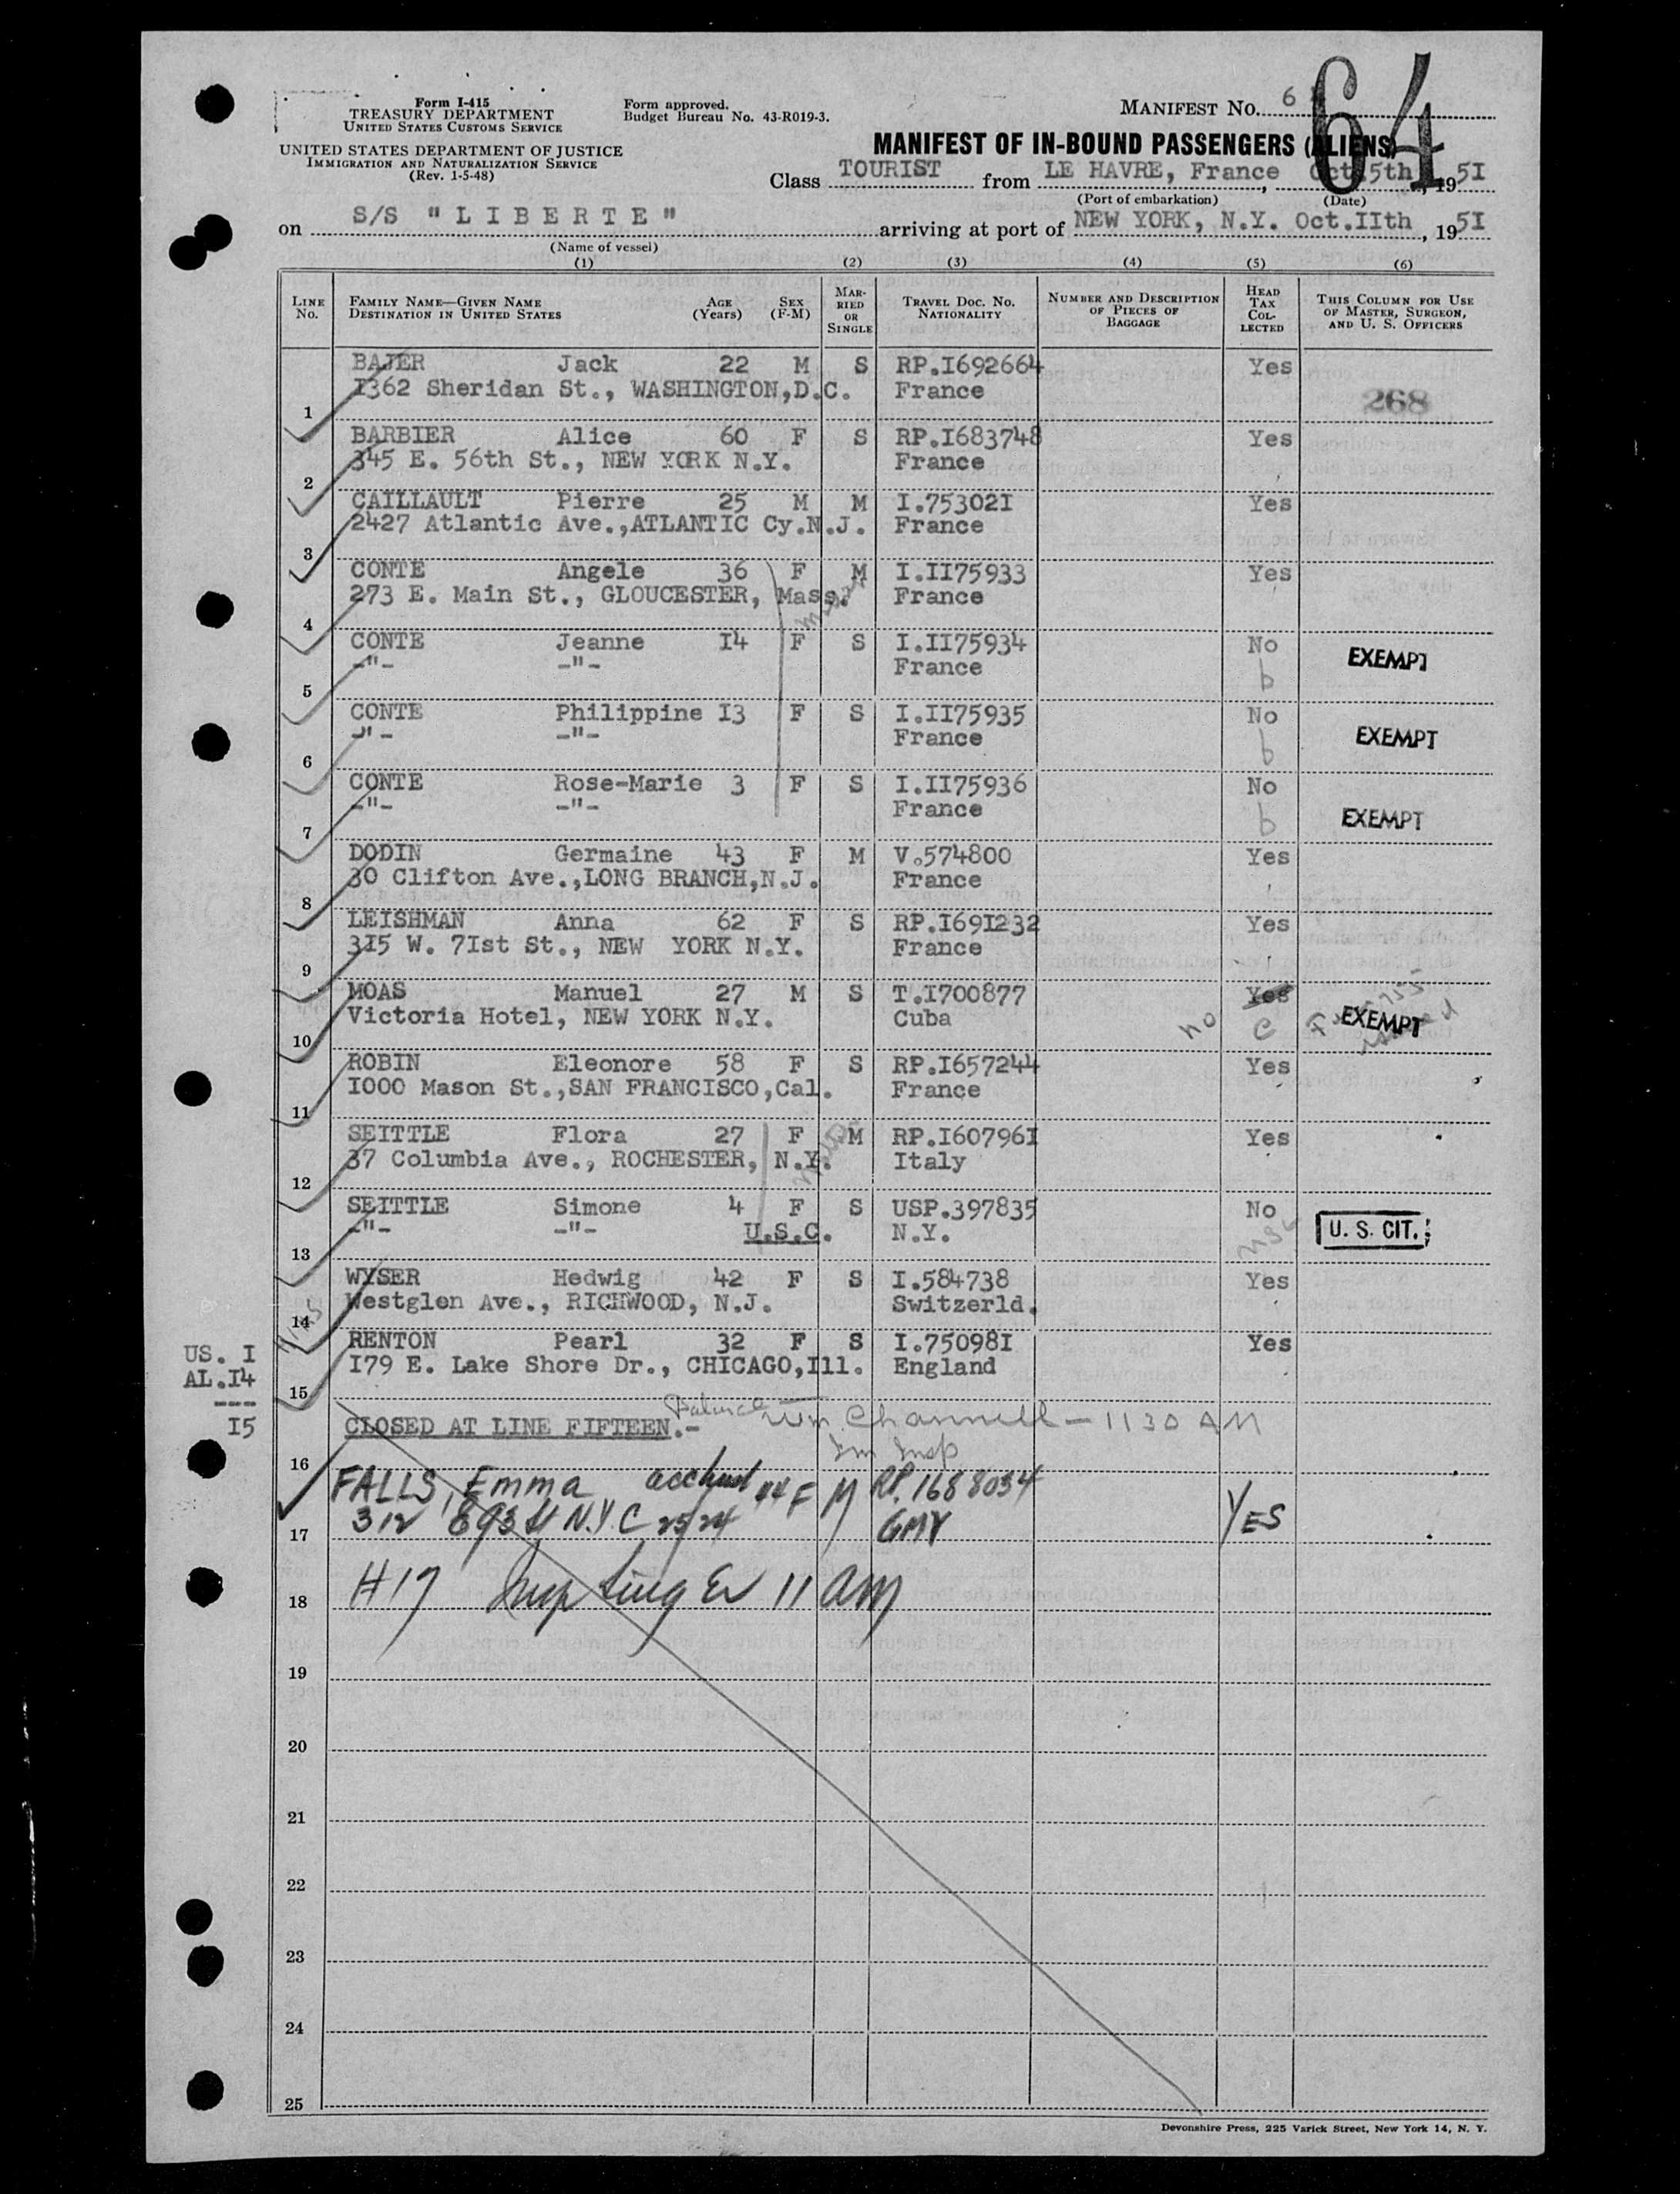 Form I-415
TREASURY DEPARTMENT
UNITED STATES CUSTOMS SERVICE
UNITED STATES DEPARTMENT OF JUSTICE
IMMIGRATION AND NATURALIZATION SERVICE
(Rev. 1-5-48)
Form approved.
Budget Bureau No. 43-R019-3.
MANIFEST NO. 6
64
MANIFEST OF IN-BOUND PASSENGERS (ALIENS)
Class TOURIST from LE HAVRE, France, Oct.5th, 1951
(Port of embarkation) (Date)
on S/S "LIBERTE" arriving at port of NEW YORK, N.Y. Oct.IIth, 195I
(Name of vessel)
(1) (2) (3) (4) (5) (6)
LINE NO.
FAMILY NAME—GIVEN NAME AGE SEX
DESTINATION IN UNITED STATES (Years) (F-M)
MARRIED OR SINGLE
TRAVEL DOC. NO. NATIONALITY
NUMBER AND DESCRIPTION OF PIECES OF BAGGAGE
HEAD TAX COLLECTED
THIS COLUMN FOR USE OF MASTER, SURGEON, AND U. S. OFFICERS
BAJER Jack 22 M S RP.I692664 Yes
1 I362 Sheridan St., WASHINGTON,D.C. France 268
BARBIER Alice 60 F S RP.I683748 Yes
2 345 E. 56th St., NEW YORK N.Y. France
CAILLAULT Pierre 25 M M I.75302I Yes
3 2427 Atlantic Ave.,ATLANTIC Cy.N.J. France
CONTE Angele 36 F M I.II75933 Yes
4 273 E. Main St., GLOUCESTER, Mass. France
CONTE Jeanne I4 F S I.II75934 No
5 -"- -"- France b EXEMPT
CONTE Philippine I3 F S I.II75935 No
6 -"- -"- France b EXEMPT
CONTE Rose-Marie 3 F S I.II75936 No
7 -"- -"- France b EXEMPT
DODIN Germaine 43 F M V.574800 Yes
8 30 Clifton Ave.,LONG BRANCH,N.J. France
LEISHMAN Anna 62 F S RP.I69I232 Yes
9 3I5 W. 7Ist St., NEW YORK N.Y. France
MOAS Manuel 27 M S T.I700877 Yes
10 Victoria Hotel, NEW YORK N.Y. Cuba no C EXEMPT
ROBIN Eleonore 58 F S RP.I657244 Yes
11 I000 Mason St.,SAN FRANCISCO,Cal. France
SEITTLE Flora 27 F M RP.I60796I Yes
12 37 Columbia Ave., ROCHESTER, N.Y. Italy
SEITTLE Simone 4 F S USP.397835 No
13 -"- -"- U.S.C. N.Y. usc U. S. CIT.
WYSER Hedwig 42 F S I.584738 Yes
14 Westglen Ave., RICHWOOD, N.J. Switzerld.
RENTON Pearl 32 F S I.75098I Yes
15 I79 E. Lake Shore Dr., CHICAGO,Ill. England
US. I
AL.I4
---
I5
CLOSED AT LINE FIFTEEN.- Balance Wm. Channell — 1130 AM
16 Im Insp
FALLS, Emma 44 F M RP. 1688034 YES
17 312 E 93 St N.Y.C GMY
18 #17 11 AM
19
20
21
22
23
24
25
Devonshire Press, 225 Varick Street, New York 14, N. Y.